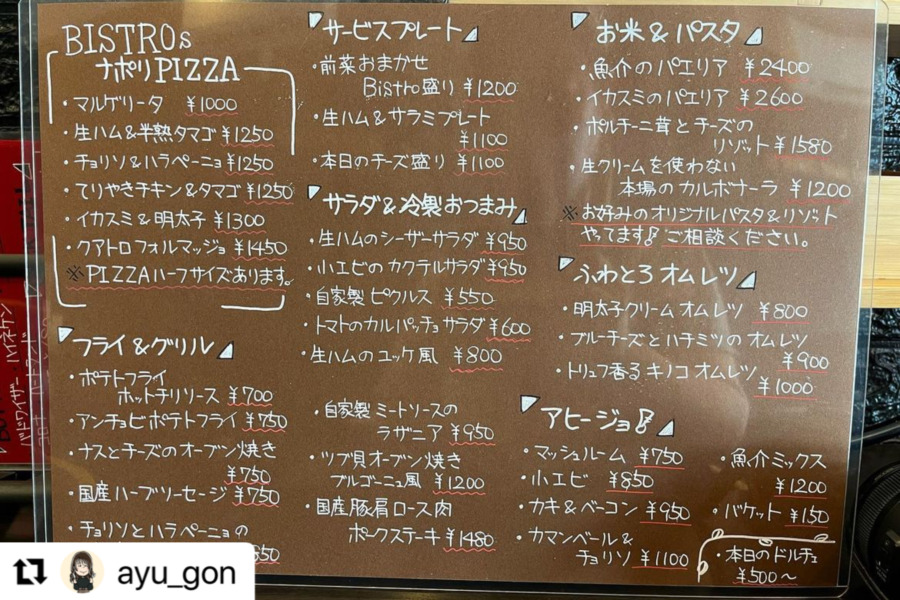 BISTROs
ナポリPIZZA
・マルゲリータ ¥1000
・生ハム&半熟タマゴ ¥1250
・チョリソ&ハラペーニョ ¥1250
・てりやきチキン&タマゴ ¥1250
・イカスミ&明太子 ¥1300
・クアトロフォルマッジョ ¥1450
※PIZZAハーフサイズあります。
フライ&グリル
・ポテトフライ
ホットチリソース ¥700
・アンチョビポテトフライ ¥750
・ナスとチーズのオーブン焼き
¥750
・国産ハーブソーセージ ¥750
・チョリソとハラペーニョの
サービスプレート
・前菜おまかせ
Bistro盛り ¥1200
・生ハム&サラミプレート
¥1100
・本日のチーズ盛り ¥1100
サラダ&冷製おつまみ
・生ハムのシーザーサラダ ¥950
・小エビのカクテルサラダ ¥950
・自家製ピクルス ¥550
・トマトのカルパッチョサラダ ¥600
・生ハムのユッケ風 ¥800
・自家製ミートソースの
ラザニア ¥950
・ツブ貝オーブン焼き
ブルゴーニュ風 ¥1200
・国産豚肩ロース肉
ポークステーキ ¥1480
お米&パスタ
・魚介のパエリア ¥2400
・イカスミのパエリア ¥2600
・ポルチーニ茸とチーズの
リゾット ¥1580
・生クリームを使わない
本場のカルボナーラ ¥1200
※お好みのオリジナルパスタ&リゾット
やってます! ご相談ください。
ふわとろオムレツ
・明太子クリームオムレツ ¥800
・ブルーチーズとハチミツのオムレツ
¥900
・トリュフ香るキノコオムレツ
¥1000
アヒージョ!
・マッシュルーム ¥750
・小エビ ¥850
・カキ&ベーコン ¥950
・カマンベール&
チョリソ ¥1100
・魚介ミックス
¥1200
・バケット ¥150
・本日のドルチェ
¥500~
ayu_gon